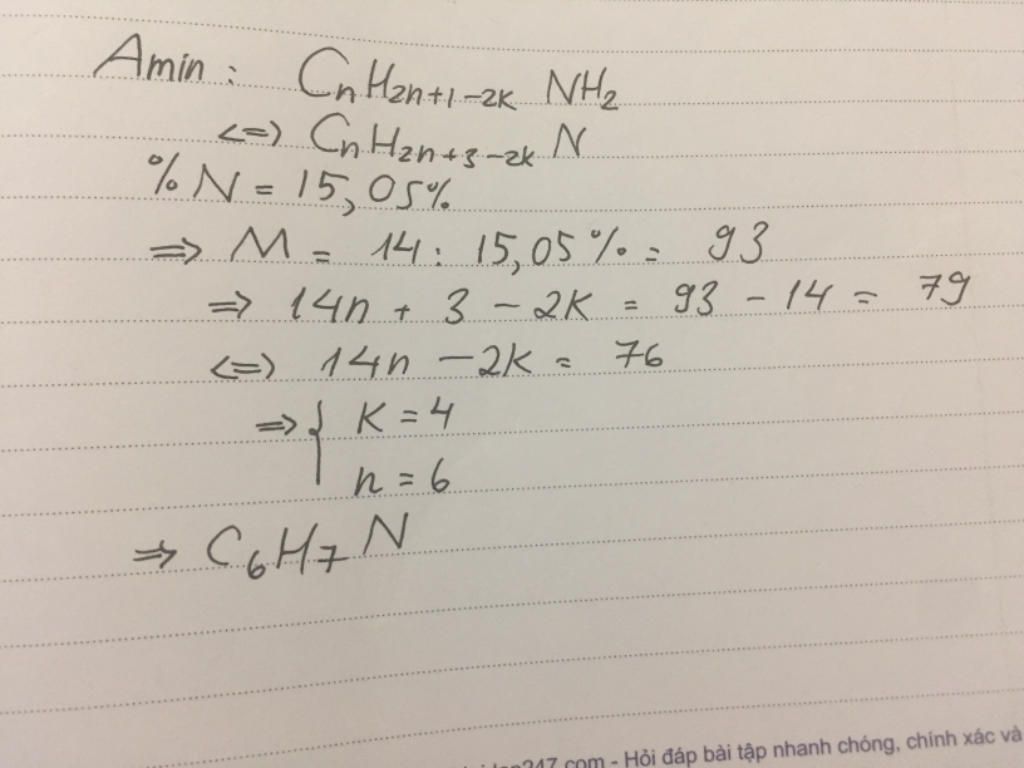 Amin : CnH2n+1-2K NH2
<=> CnH2n+3-2K N
% N = 15,05%
=> M = 14 : 15,05% = 93
=> 14n + 3 - 2K = 93 - 14 = 79
<=> 14n - 2K = 76
=> { K = 4
n = 6
=> C6H7N
247.com - Hỏi đáp bài tập nhanh chóng, chính xác và